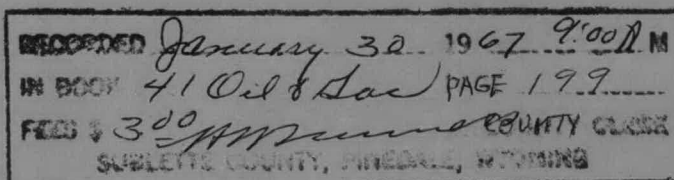 RECORDED January 30 1967 9:00 A M
IN BOOK 41 Oil & Gas PAGE 199
FEES $ 3.00 COUNTY CLERK
SUBLETTE COUNTY, PINEDALE, WYOMING